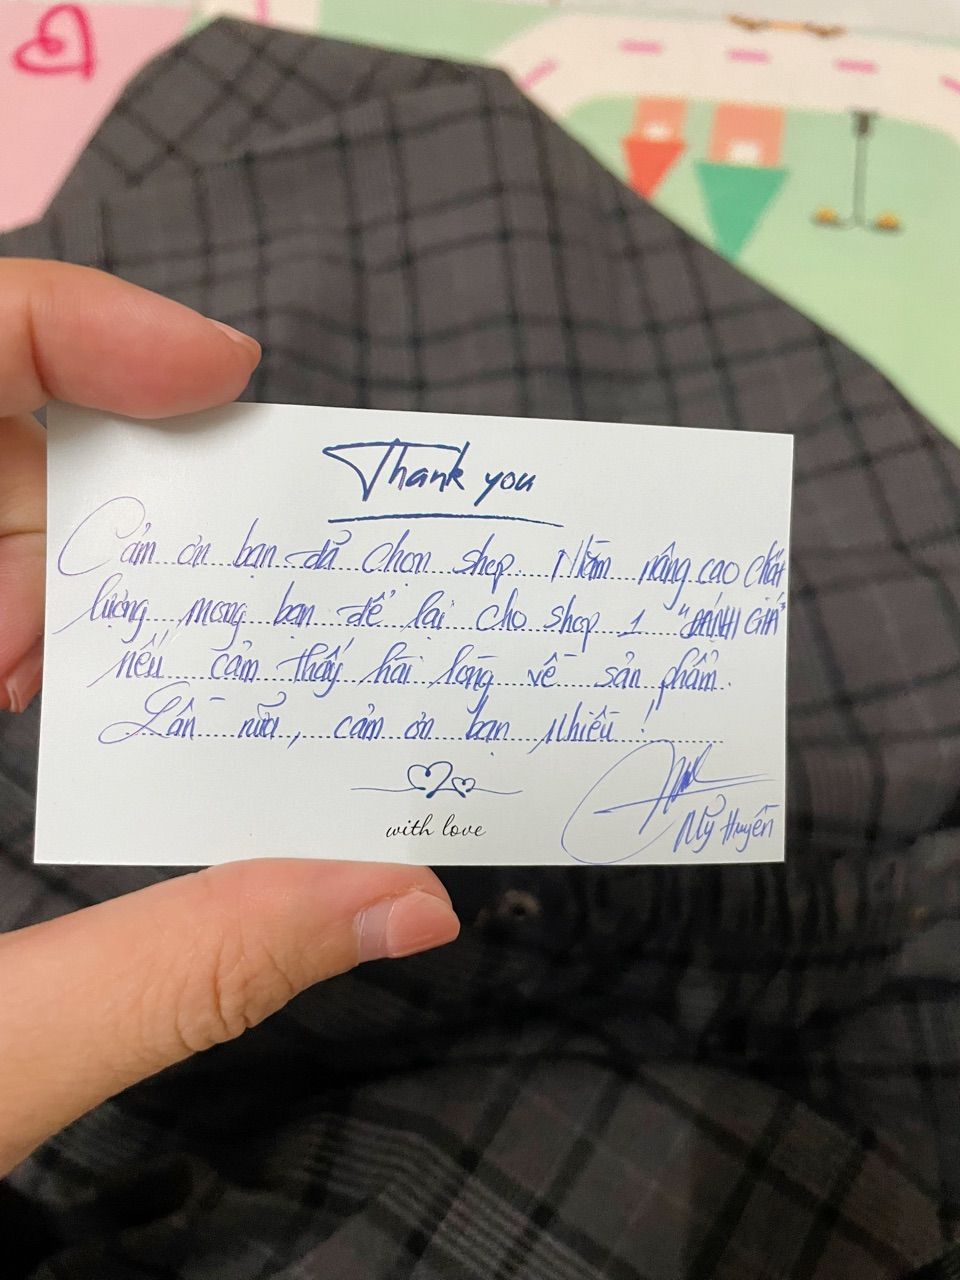 Thank you
Cảm ơn bạn đã chọn shop. Nhằm nâng cao chất
lượng mong bạn để lại cho shop 1 "ĐÁNH GIÁ"
nếu cảm thấy hài lòng về sản phẩm.
Lần nữa, cảm ơn bạn nhiều!
with love
Mỹ Huyền